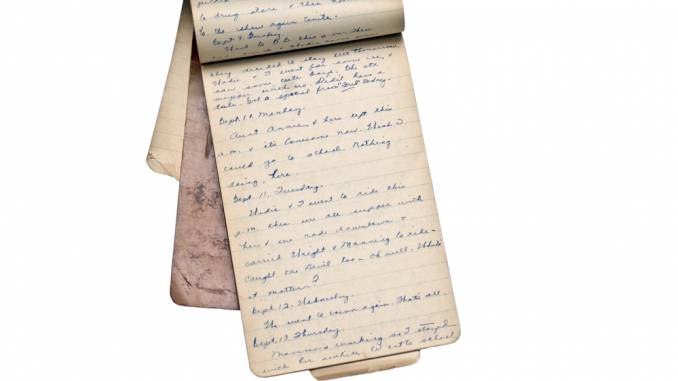 to drug store & then home
to the show again tonite.
Sept. 9. Sunday.
Went to B.B. this a.m. then
they decided to stay till tomorrow,
& I went for some ice, &
saw some cute boys. We ate
supper with us. Didn't have a
Got a special from today.
Sept. 10. Monday.
Aunt Annie & hers left this
a.m. & its lonesome now. Wish I
could go to school. Nothing
doing here.
Sept. 11. Tuesday.
& I went to ride this
p.m. then we ate supper with
her & we rode downtown &
carried Wright & Manning to ride -
caught the Devil too - oh well - what's
it matter?
Sept. 12. Wednesday.
We went to again. That's all.
Sept. 13 Thursday.
Mamma's working so I stayed
with her to school